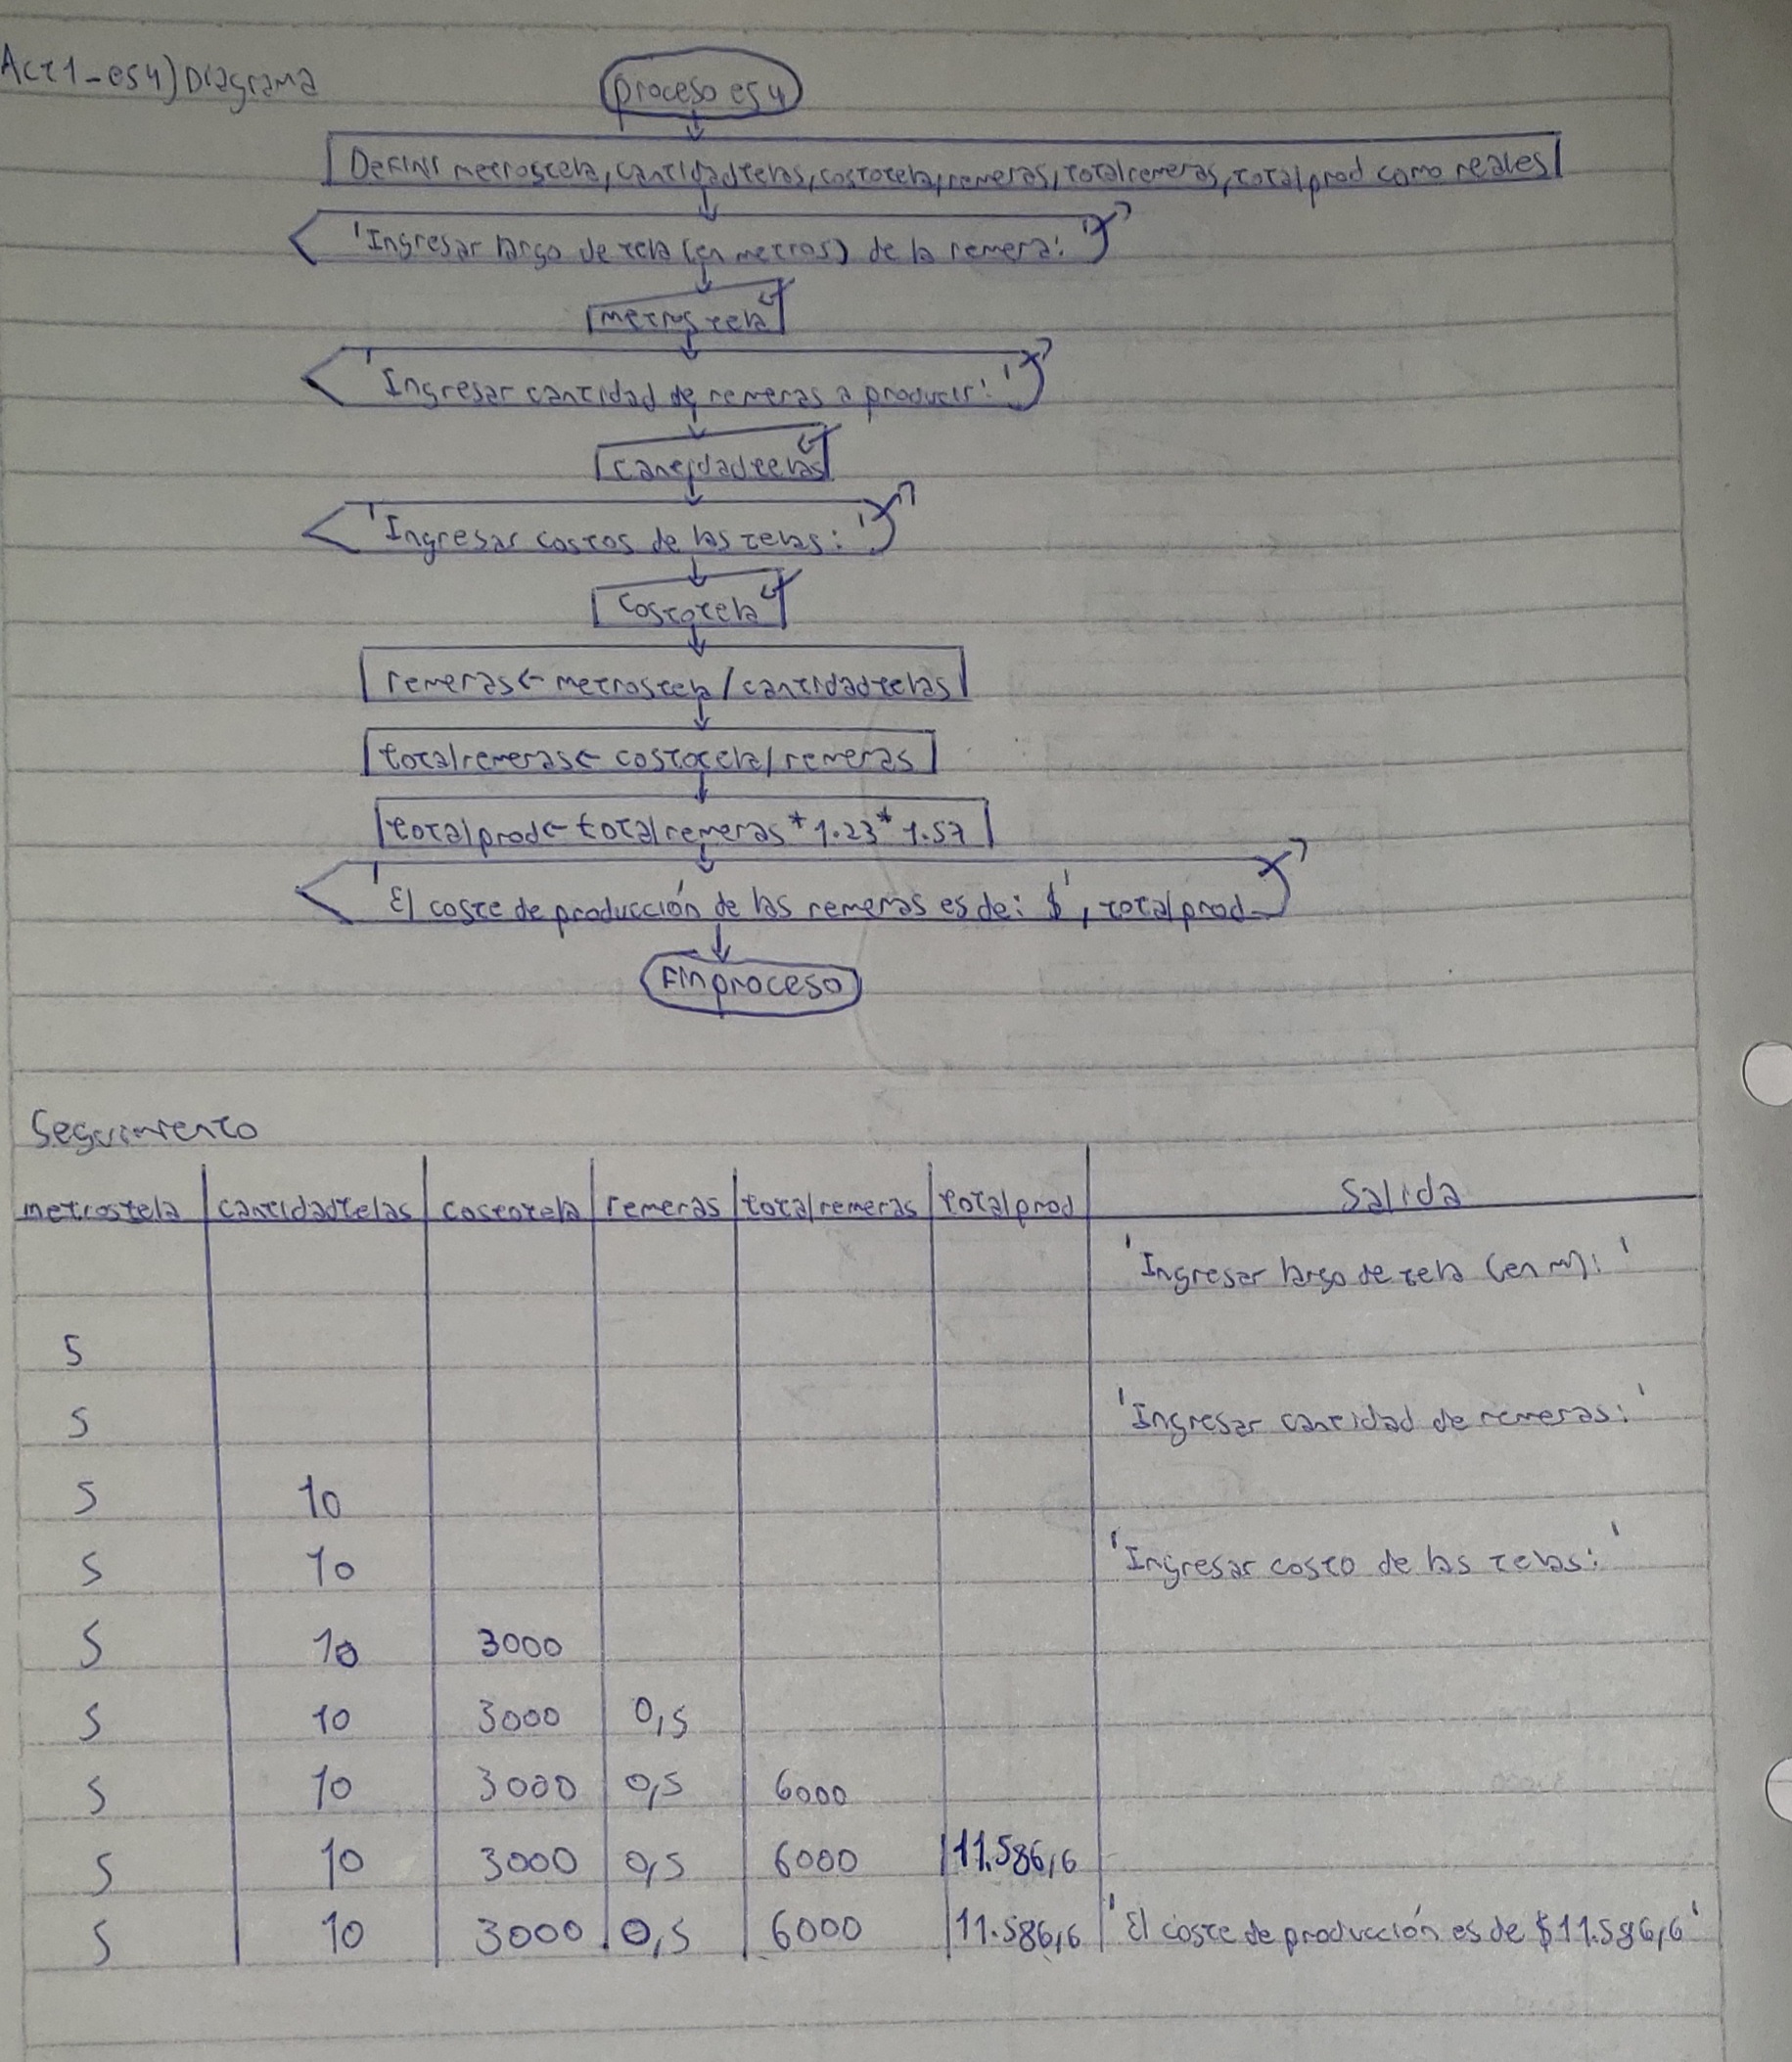 Act1_es4) Diagrama
proceso es4
Definir metrostela, cantidadtelas, costotela, remeras, totalremeras, totalprod como reales
'Ingresar largo de tela (en metros) de la remera: '
metrostela
'Ingresar cantidad de remeras a producir: '
cantidadtelas
'Ingresar costos de las telas: '
costotela
remeras ← metrostela / cantidadtelas
totalremeras ← costotela / remeras
totalprod ← totalremeras * 1.23 * 1.57
'El coste de producción de las remeras es de: $', totalprod
Finproceso
Seguimiento
metrostela cantidadtelas costotela remeras totalremeras totalprod Salida
'Ingresar largo de tela (en m): '
5
5 'Ingresar cantidad de remeras: '
5 10
5 10 'Ingresar costo de las telas: '
5 10 3000
5 10 3000 0,5
5 10 3000 0,5 6000
5 10 3000 0,5 6000 11.586,6
5 10 3000 0,5 6000 11.586,6 'El coste de producción es de $11.586,6'